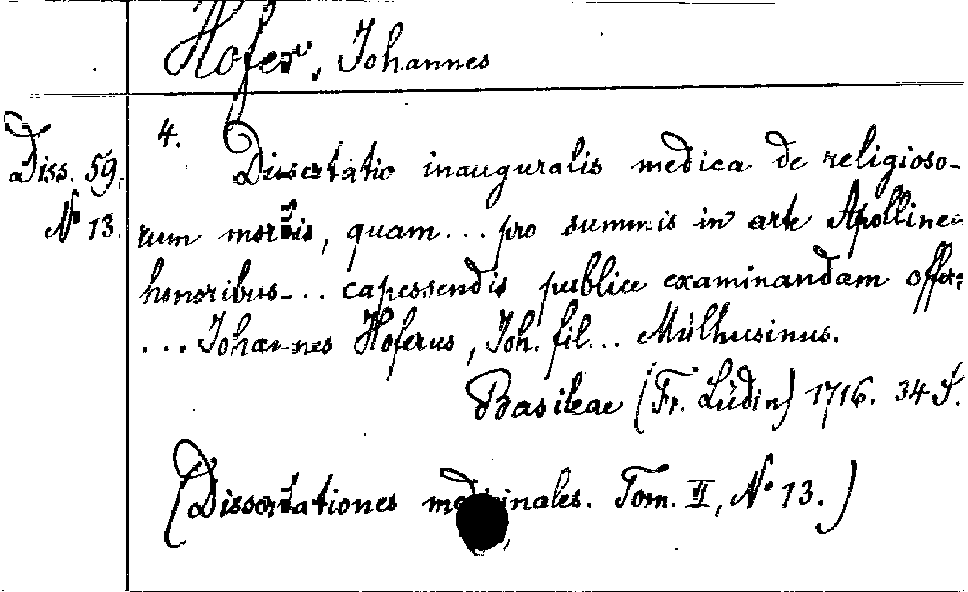 Hofer, Johannes
Diss. 59.
No 13.
4.
Dissertatio inauguralis medica de religioso-
rum morbis, quam... pro summis in arte Apollinea
honoribus... capessendis publice examinandam offert
... Johannes Hoferus, Joh. fil... Mülhusinus.
Basileae (Fr. Lüdin) 1716. 34 S.
(Dissertationes medicinales. Tom. II, No 13.)